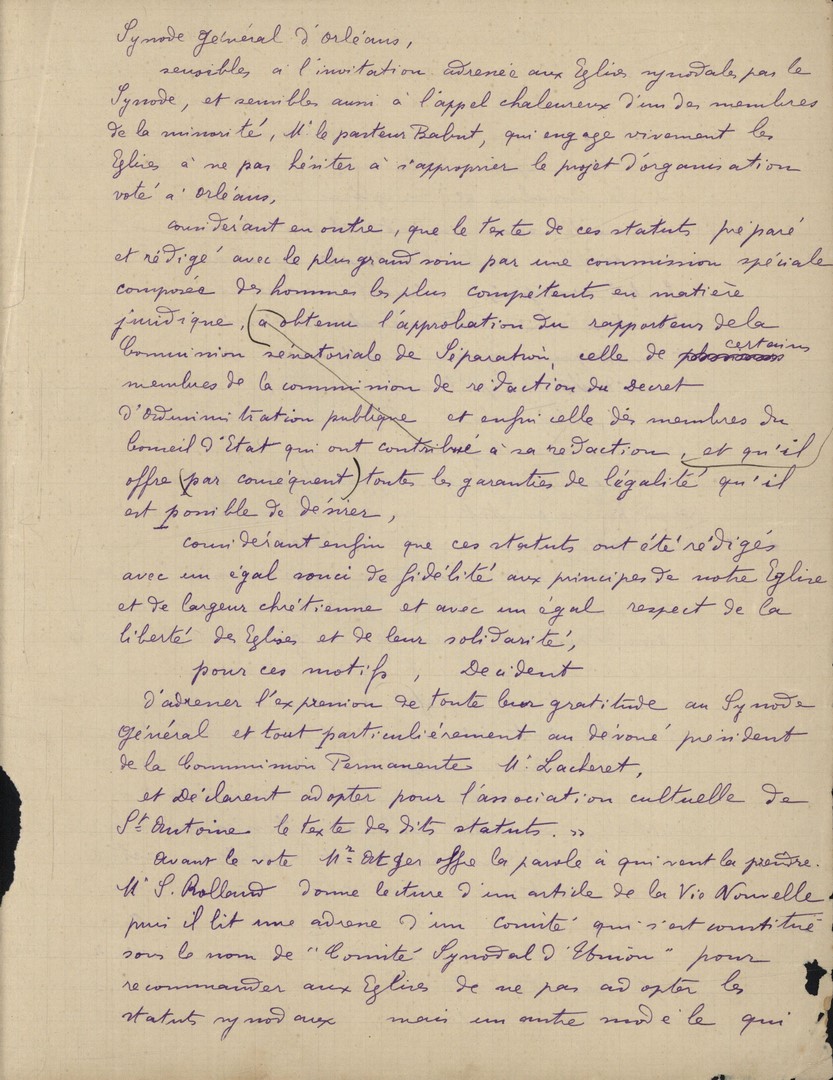 Synode Général d'Orléans,
sensibles à l'invitation adressée aux Eglises synodales par le
Synode, et sensibles aussi à l'appel chaleureux d'un des membres
de la minorité, Mr le pasteur Babut, qui engage vivement les
Eglises à ne pas hésiter à s'approprier le projet d'organisation
voté à Orléans,
considérant en outre, que le texte de ces statuts préparé
et rédigé avec le plus grand soin par une commission spéciale
composée des hommes les plus compétents en matière
juridique, (a obtenu l'approbation du rapporteur de la
Commission sénatoriale de Séparation, celle de certains
membres de la commission de rédaction du Decret
d'administration publique et enfin celle des membres du
Conseil d'Etat qui ont contribué à sa rédaction, et qu'il
offre (par conséquent) toutes les garanties de légalité qu'il
est possible de désirer,
considérant enfin que ces statuts ont été rédigés
avec un égal souci de fidélité aux principes de notre Eglise
et de largeur chrétienne et avec un égal respect de la
liberté des Eglises et de leur solidarité,
pour ces motifs, Décident
d'adresser l'expression de toute leur gratitude au Synode
Général et tout particulièrement au dévoué président
de la Commission Permanente Mr Lacheret,
et Déclarent adopter pour l'association cultuelle de
St Antoine le texte des dits statuts. »
Avant le vote Mr Atger offre la parole à qui veut la prendre.
Mr S. Rolland donne lecture d'un article de la Vie Nouvelle
puis il lit une adresse d'un comité qui s'est constitué
sous le nom de "Comité Synodal d'Union" pour
recommander aux Eglises de ne pas adopter les
statuts synodaux mais un autre modèle qui